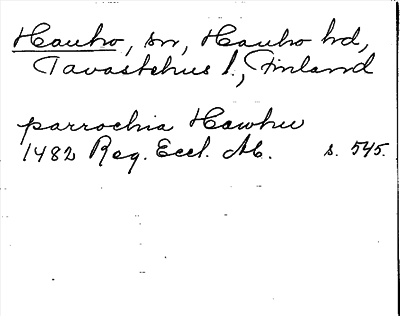 Hauho, sn, Hauho hd,
Tavastehus l., Finland
parrochia Hawhu
1482 Reg. Eccl. Ab. s. 545.